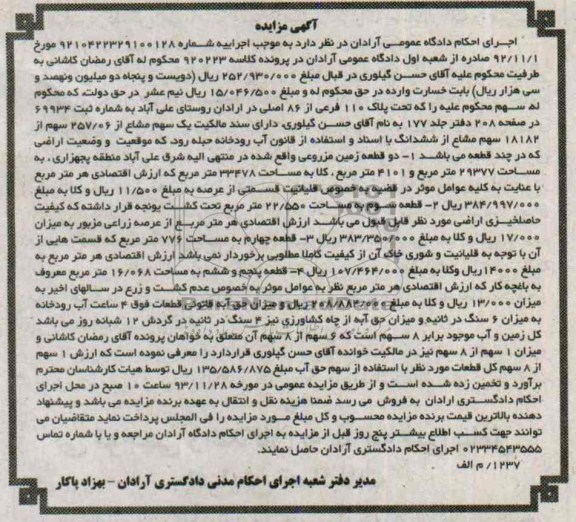 آگهی مزایده
اجرای احکام دادگاه عمومی آرادان در نظر دارد به موجب اجراییه شماره ۹۲۱۰۴۲۲۳۲۹۱۰۰۱۲۸ مورخ
۹۲/۱۱/۱ صادره از شعبه اول دادگاه عمومی آرادان در پرونده کلاسه ۹۲۰۲۲۳ محکوم له آقای رمضان کاشانی به
طرفیت محکوم علیه آقای حسن گیلوری در قبال مبلغ ۲۵۲/۹۳۰/۰۰۰ ریال (دویست و پنجاه دو میلیون ونهصد و
سی هزار ریال) بابت خسارت وارده در حق محکوم له و مبلغ ۱۵/۰۴۶/۵۰۰ ریال نیم عشر در حق دولت، که محکوم
له، سهم محکوم علیه را که تحت پلاک ۱۱۰ فرعی از ۸۶ اصلی در ارادان روستای علی آباد به شماره ثبت ۶۹۹۳۴
در صفحه ۲۰۸ دفتر جلد ۱۷۷ به نام آقای حسن گیلوری، دارای سند مالکیت یک سهم مشاع از ۲۵۷/۰۶ سهم از
۱۸۱۸۲ سهم مشاع از ششدانگ با اسناد و استفاده از قانون آب رودخانه حبله رود، که موقعیت و وضعیت اراضی
که در چند قطعه می باشد ۱- دو قطعه زمین مزروعی واقع شده در منتهی الیه شرق علی آباد منطقه پجهزاری، به
مساحت ۲۹۳۷۷ متر مربع و ۴۱۰۱ متر مربع، کلا به مساحت ۳۳۴۷۸ متر مربع که ارزش اقتصادی هر متر مربع
با عنایت به کلیه عوامل موثر در قضیه به خصوص قلیائیت قسمتی از عرصه به مبلغ ۱۱/۵۰۰ ریال و کلا به مبلغ
۳۸۴/۹۹۷/۰۰۰ ریال ۲- قطعه سوم به مساحت ۲۲/۵۵۰ متر مربع تحت کشت یونجه قرار داشته که کیفیت
حاصلخیزی اراضی مورد نظر قابل قبول می باشد. ارزش اقتصادی هر متر مربع از عرصه زراعی مزبور به میزان
۱۷/۰۰۰ ریال و کلا به مبلغ ۳۸۳/۳۵۰/۰۰۰ ریال ۳- قطعه چهارم به مساحت ۷۷۶ متر مربع که قسمت هایی از
آن با توجه به قلیائیت و شوری خاک آن از کیفیت کاملا مطلوبی برخوردار نمی باشد ارزش اقتصادی هر متر مربع به
مبلغ ۱۴۰۰۰ریال وکلا به مبلغ ۱۰۷/۴۶۴/۰۰۰ ریال ۴- قطعه پنجم و ششم به مساحت ۱۶/۰۶۸ متر مربع معروف
به باغچه کار که ارزش اقتصادی هر متر مربع نظر به عوامل موثر به خصوص عدم کشت و زرع در سالهای اخیر به
میزان ۱۳/۰۰۰ ریال و کلا به مبلغ ۲۰۸/۸۸۴/۰۰۰ ریال و میزان حق آبه قانونی قطعات فوق ۴ ساعت آب رودخانه
به میزان ۶ سنگ در ثانیه و میزان حق آبه از چاه کشاورزی نیز ۴ سنگ در ثانیه در گردش ۱۲ شبانه روز می باشد
کل زمین و آب موجود برابر ۸ سهم است که ۶ سهم از ۸ سهم آن متعلق به خواهان پرونده آقای رمضان کاشانی و
میزان ۱ سهم از ۸ سهم نیز در مالکیت خوانده آقای حسن گیلوری قراردارد را معرفی نموده است که ارزش ۱ سهم
از ۸ سهم کل قطعات مورد نظر با استفاده از سهم حق آب مبلغ ۱۳۵/۵۸۶/۸۷۵ ریال توسط هیات کارشناسان محترم
برآورد و تخمین زده شده است و از طریق مزایده عمومی در مورخه ۹۳/۱۱/۲۸ ساعت ۱۰ صبح در محل اجرای
احکام دادگستری ارادان به فروش می رسد ضمنا هزینه نقل و انتقال به عهده برنده مزایده می باشد و پیشنهاد
دهنده بالاترین قیمت برنده مزایده محسوب و کل مبلغ مورد مزایده را فی المجلس پرداخت نماید متقاضیان می
توانند جهت کسب اطلاع بیشتر پنج روز قبل از مزایده به اجرای احکام دادگاه آرادان مراجعه و یا با شماره تماس
۰۲۳۳۴۵۴۳۵۵۵ اجرای احکام دادگستری آرادان حاصل نمایند.
۱۲۳۷/ م الف
مدیر دفتر شعبه اجرای احکام مدنی دادگستری آرادان - بهزاد پاکار